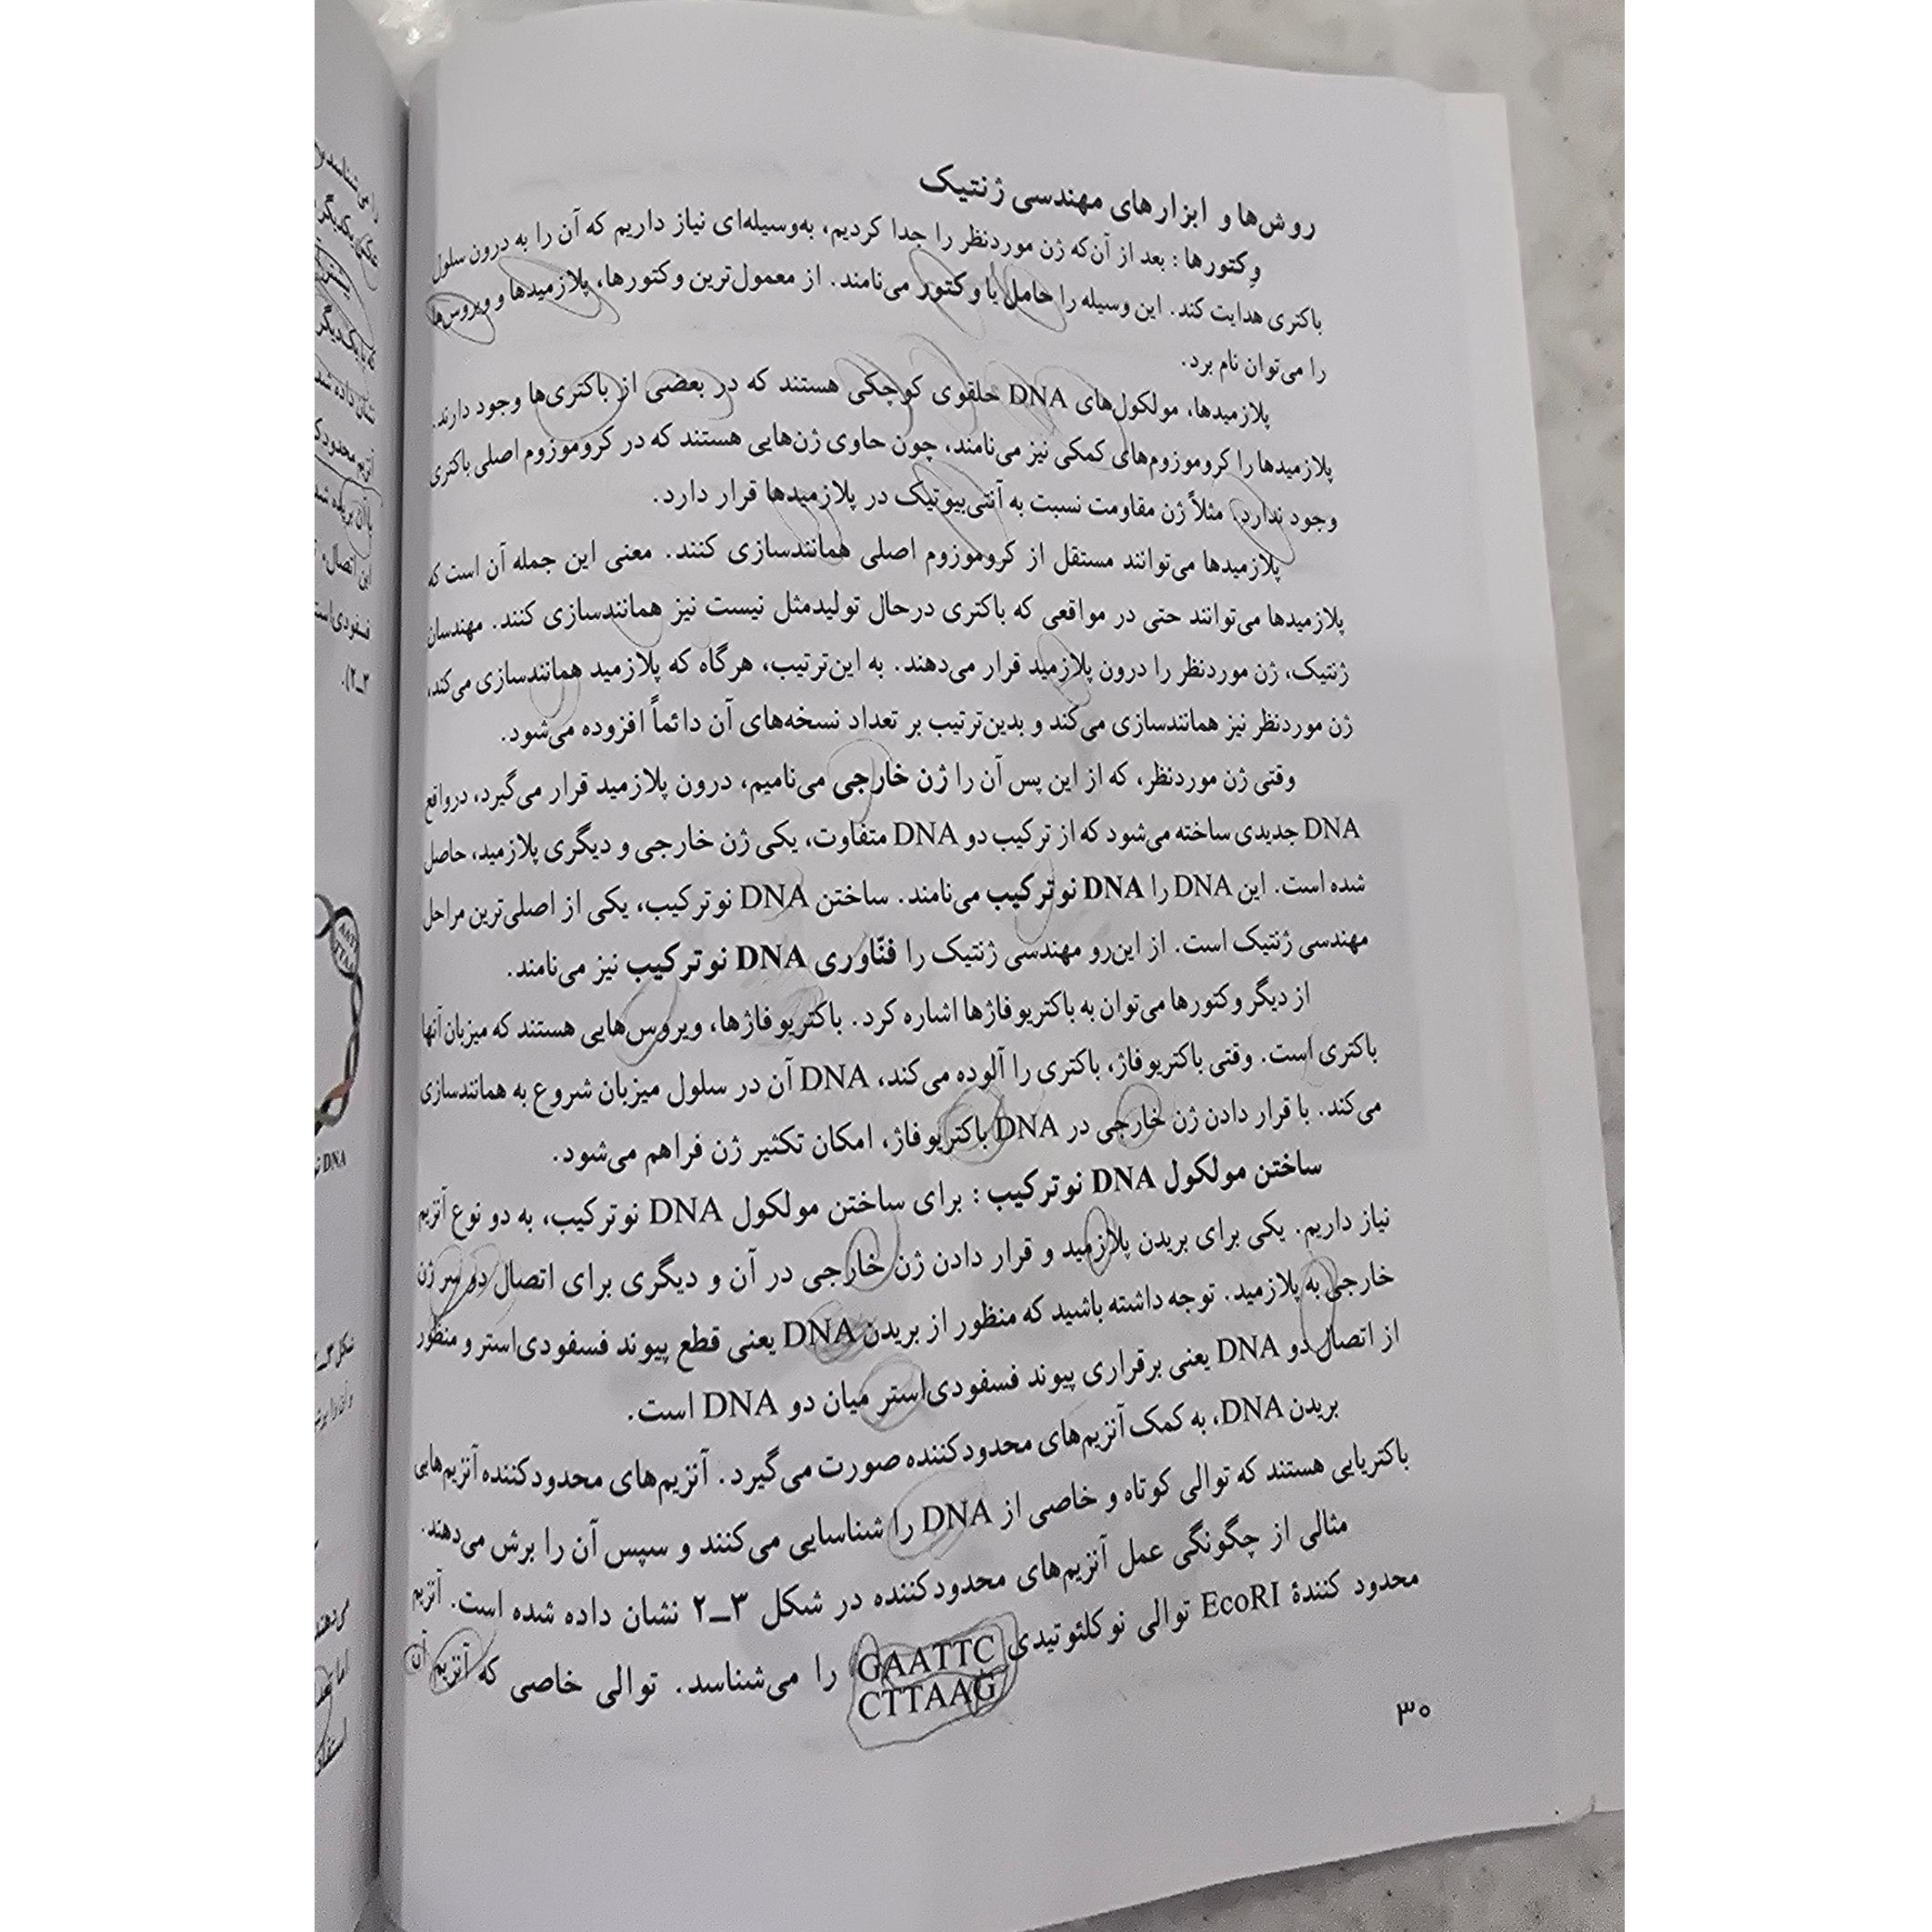 روش‌ها و ابزارهای مهندسی ژنتیک
وِکتورها : بعد از آن‌که ژن موردنظر را جدا کردیم، به‌وسیله‌ای نیاز داریم که آن را به درون سلول
باکتری هدایت کند. این وسیله را حامل یا وکتور می‌نامند. از معمول‌ترین وکتورها، پلازمیدها و ویروس‌ها
را می‌توان نام برد.
پلازمیدها، مولکول‌های DNA حلقوی کوچکی هستند که در بعضی از باکتری‌ها وجود دارند.
پلازمیدها را کروموزوم‌های کمکی نیز می‌نامند، چون حاوی ژن‌هایی هستند که در کروموزوم اصلی باکتری
وجود ندارد، مثلاً ژن مقاومت نسبت به آنتی‌بیوتیک در پلازمیدها قرار دارد.
پلازمیدها می‌توانند مستقل از کروموزوم اصلی همانندسازی کنند. معنی این جمله آن است که
پلازمیدها می‌توانند حتی در مواقعی که باکتری درحال تولیدمثل نیست نیز همانندسازی کنند. مهندسان
ژنتیک، ژن موردنظر را درون پلازمید قرار می‌دهند. به این‌ترتیب، هرگاه که پلازمید همانندسازی می‌کند،
ژن موردنظر نیز همانندسازی می‌کند و بدین‌ترتیب بر تعداد نسخه‌های آن دائماً افزوده می‌شود.
وقتی ژن موردنظر، که از این پس آن را ژن خارجی می‌نامیم، درون پلازمید قرار می‌گیرد، درواقع
DNA جدیدی ساخته می‌شود که از ترکیب دو DNA متفاوت، یکی ژن خارجی و دیگری پلازمید، حاصل
شده است. این DNA را DNA نوترکیب می‌نامند. ساختن DNA نوترکیب، یکی از اصلی‌ترین مراحل
مهندسی ژنتیک است. از این‌رو مهندسی ژنتیک را فنّاوری DNA نوترکیب نیز می‌نامند.
از دیگر وکتورها می‌توان به باکتریوفاژها اشاره کرد. باکتریوفاژها، ویروس‌هایی هستند که میزبان آنها
باکتری است. وقتی باکتریوفاژ، باکتری را آلوده می‌کند، DNA آن در سلول میزبان شروع به همانندسازی
می‌کند. با قرار دادن ژن خارجی در DNA باکتریوفاژ، امکان تکثیر ژن فراهم می‌شود.
ساختن مولکول DNA نوترکیب : برای ساختن مولکول DNA نوترکیب، به دو نوع آنزیم
نیاز داریم. یکی برای بریدن پلازمید و قرار دادن ژن خارجی در آن و دیگری برای اتصال دو سر ژن
خارجی به پلازمید. توجه داشته باشید که منظور از بریدن DNA یعنی قطع پیوند فسفودی‌استر و منظور
از اتصال دو DNA یعنی برقراری پیوند فسفودی‌استر میان دو DNA است.
بریدن DNA، به کمک آنزیم‌های محدودکننده صورت می‌گیرد. آنزیم‌های محدودکننده آنزیم‌هایی
باکتریایی هستند که توالی کوتاه و خاصی از DNA را شناسایی می‌کنند و سپس آن را برش می‌دهند.
مثالی از چگونگی عمل آنزیم‌های محدودکننده در شکل ۳ــ۲ نشان داده شده است. آنزیم
محدود کنندۀ EcoRI توالی نوکلئوتیدی GAATTC را می‌شناسد. توالی خاصی که آنزیم آن
CTTAAG
۳۰
را می‌شناسد
یکدیگر
که با یک‌دیگر
نشان داده شد
آنزیم محدودک
با آن بریده شد
این اتصال،
فسفودی‌است
۳ــ۲).
DNA نو
شکل ۳ــ
می‌دهند
اما
استفاد